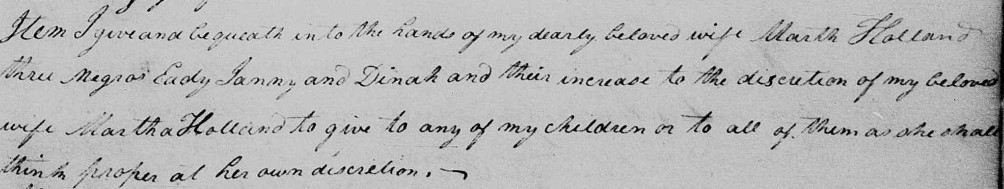 Item I give and bequeath in to the hands of my dearly beloved wife Marth Holland
three Negros Eady Janny and Dinah and their increase to the discretion of my beloved
wife Martha Holland to give to any of my children or to all of them as she shall
think proper at her own discretion.